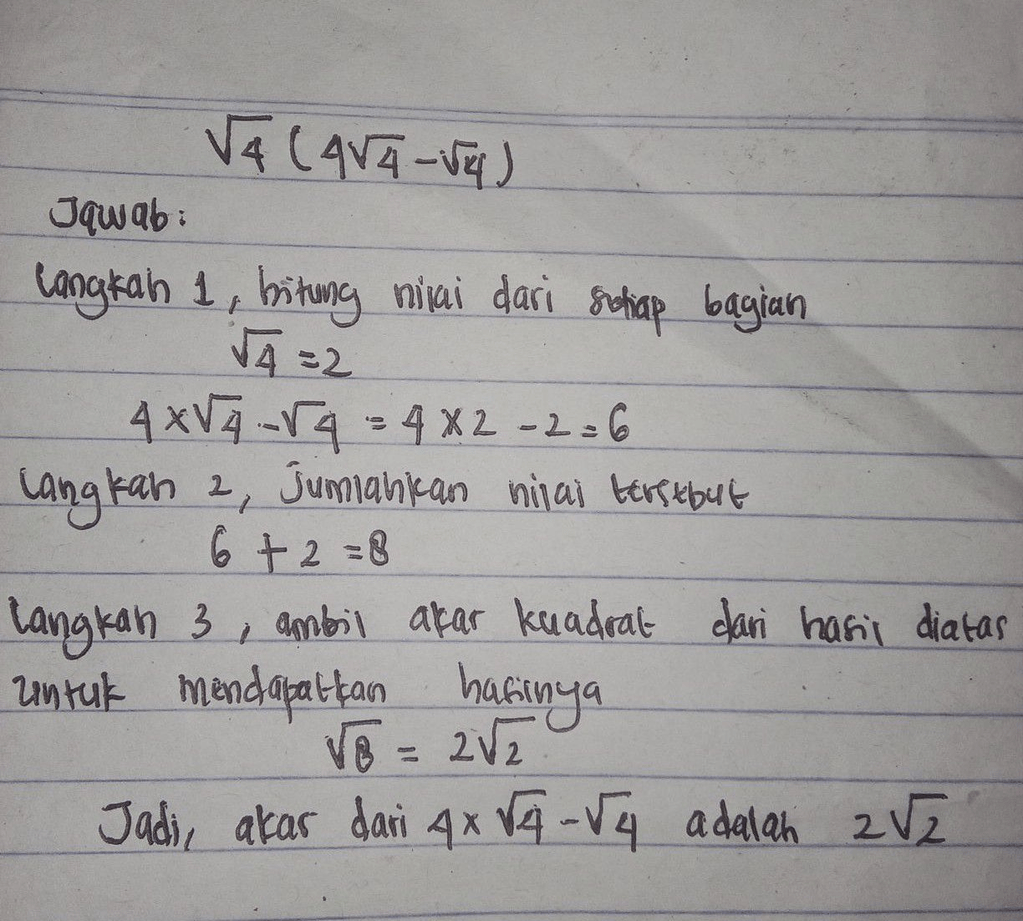 √4 (4√4 - √4)
Jawab:
Langkah 1, hitung nilai dari setiap bagian
√4 = 2
4 × √4 - √4 = 4 × 2 - 2 = 6
Langkah 2, jumlahkan nilai tersebut
6 + 2 = 8
Langkah 3, ambil akar kuadrat dari hasil diatas
untuk mendapatkan hasilnya
√8 = 2√2
Jadi, akar dari 4 × √4 - √4 adalah 2√2